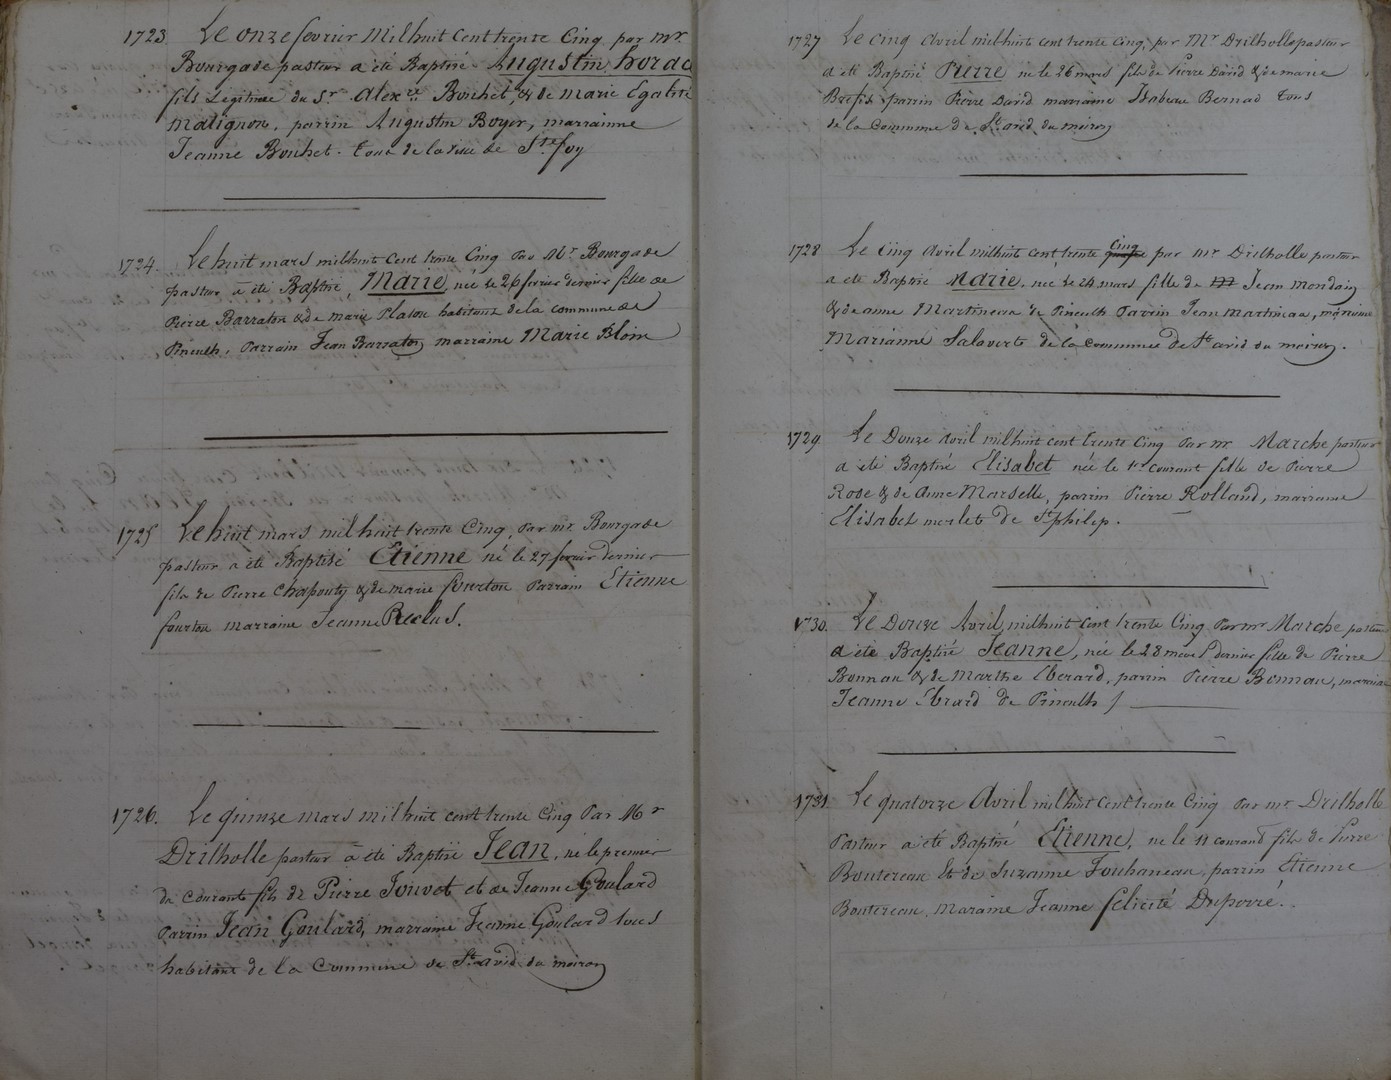 1723. Le onze fevrier Mil huit Cent trente Cinq par mr
Bourgade pasteur a été Baptisé Augustin horac
fils Légitime du Sr Alexre Bouhet, & de marie Egalité
Matignon, parrin Augustin Boyer, marrainne
Jeanne Bouhet. tous de la ville de Ste foy
1724. Le huit mars mil huit Cent trente Cinq Par Mr Bourgade
pasteur a été Baptisé Marie née le 26 fevrier dernier fille de
Pierre Barraton & de marie habitant de la commune de
Pineuilh, Parrain Jean Barraton marraine Marie Bloin
1725 Le huit mars mil huit trente Cinq, Par mr Bourgade
pasteur a été Baptisé Etienne né le 27 fevrier dernier
fils de Pierre Chapouty & de marie fourtou Parrain Etienne
fourtou marraine Jeanne Reclus.
1726. Le quinze mars mil huit cent trente Cinq Par Mr
Drilholle pasteur a été Baptisé Jean, né le premier
du courant fils de Pierre Jouvet et de Jeanne Goulard
Parrin Jean Goulard, marraine Jeanne Goulard tous
habitant de la Commune de St avid du moiron
1727 Le Cinq Avril mil huit cent trente Cinq, par Mr Drilholle pasteur
a été Baptisé Pierre né le 26 mars fils de Pierre David & de marie
parrin Pierre David marraine Isabeau Bernad tous
de la Commune de St avid du moiron
1728 Le Cinq Avril mil huit cent trente Cinq par mr Drilholle pasteur
a été Baptisé Marie, née le 24 mars fille de Jean mondain
& de anne Martineau de Pineuilh Parrin Jean Martineau, marraine
Marianne Salaverte de la Commune de St avid du moiron.
1729. Le Douze Avril mil huit cent trente Cinq Par mr Marche pasteur
a été Baptisé Elisabet née le 1r courant fille de Pierre
Rose & de Anne Marselle, parrin Pierre Rolland, marraine
Elisabet merlets de St philip.
1730. Le Douze Avril mil huit cent trente Cinq Par mr Marche pasteur
a été Baptisé Jeanne, née le 28 mars dernier fille de Pierre
Bonnau & de Marthe Eberard, parrin Pierre Bonnau, marraine
Jeanne Ebrard de Pineuilh
1731 Le quatorze Avril mil huit cent trente Cinq Par mr Drilholle
Pasteur a été Baptisé Etienne, né le 11 courant fils de Pierre
Boutereau Et de Suzanne Fouhaneau, parrin Etienne
Boutereau, Maraine Jeanne félicité Duperré.